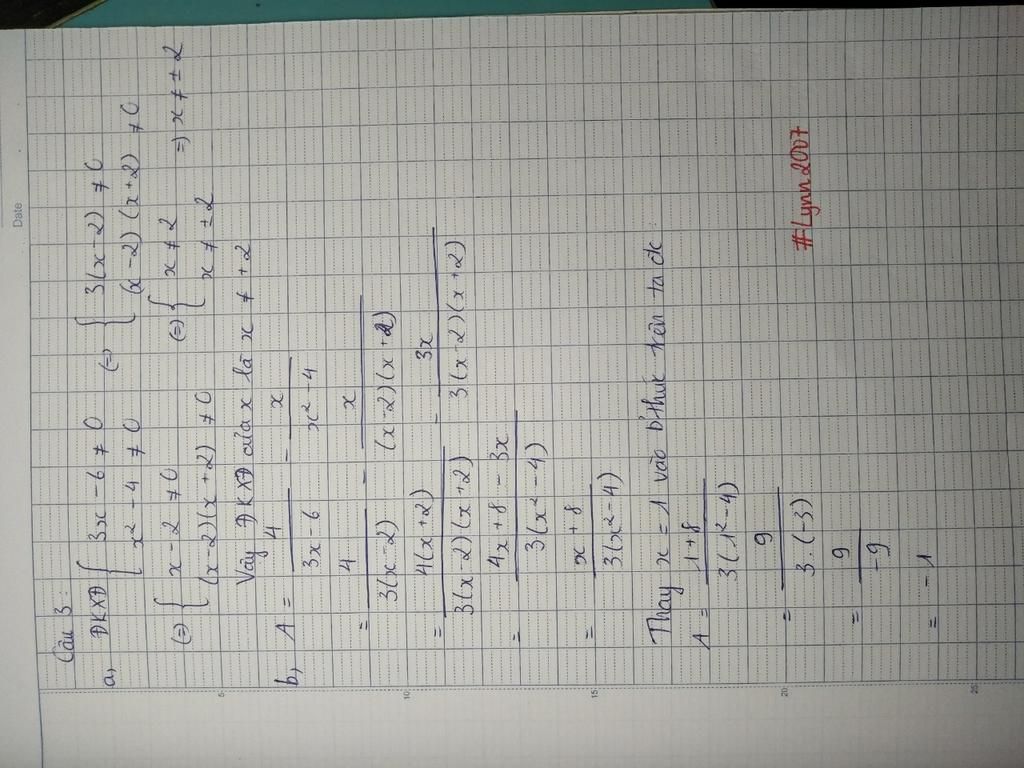 Date
Câu 3:
a, ĐKXĐ { 3x - 6 ≠ 0 (=) { 3(x-2) ≠ 0
x² - 4 ≠ 0 (x-2)(x+2) ≠ 0
(=) { x - 2 ≠ 0 (=) { x ≠ 2 => x ≠ ± 2
(x-2)(x+2) ≠ 0 x ≠ ± 2
Vậy ĐKXĐ của x là x ≠ ± 2
b, A = 4/(3x - 6) - x/(x² - 4)
= 4/(3(x-2)) - x/((x-2)(x+2))
= 4(x+2)/(3(x-2)(x+2)) - 3x/(3(x-2)(x+2))
= (4x + 8 - 3x)/(3(x² - 4))
= (x + 8)/(3(x² - 4))
Thay x = 1 vào b'thức trên ta đc:
A = (1 + 8)/(3(1² - 4))
= 9/(3.(-3))
= 9/-9
= -1
#Lynn2007
5
10
15
20
25